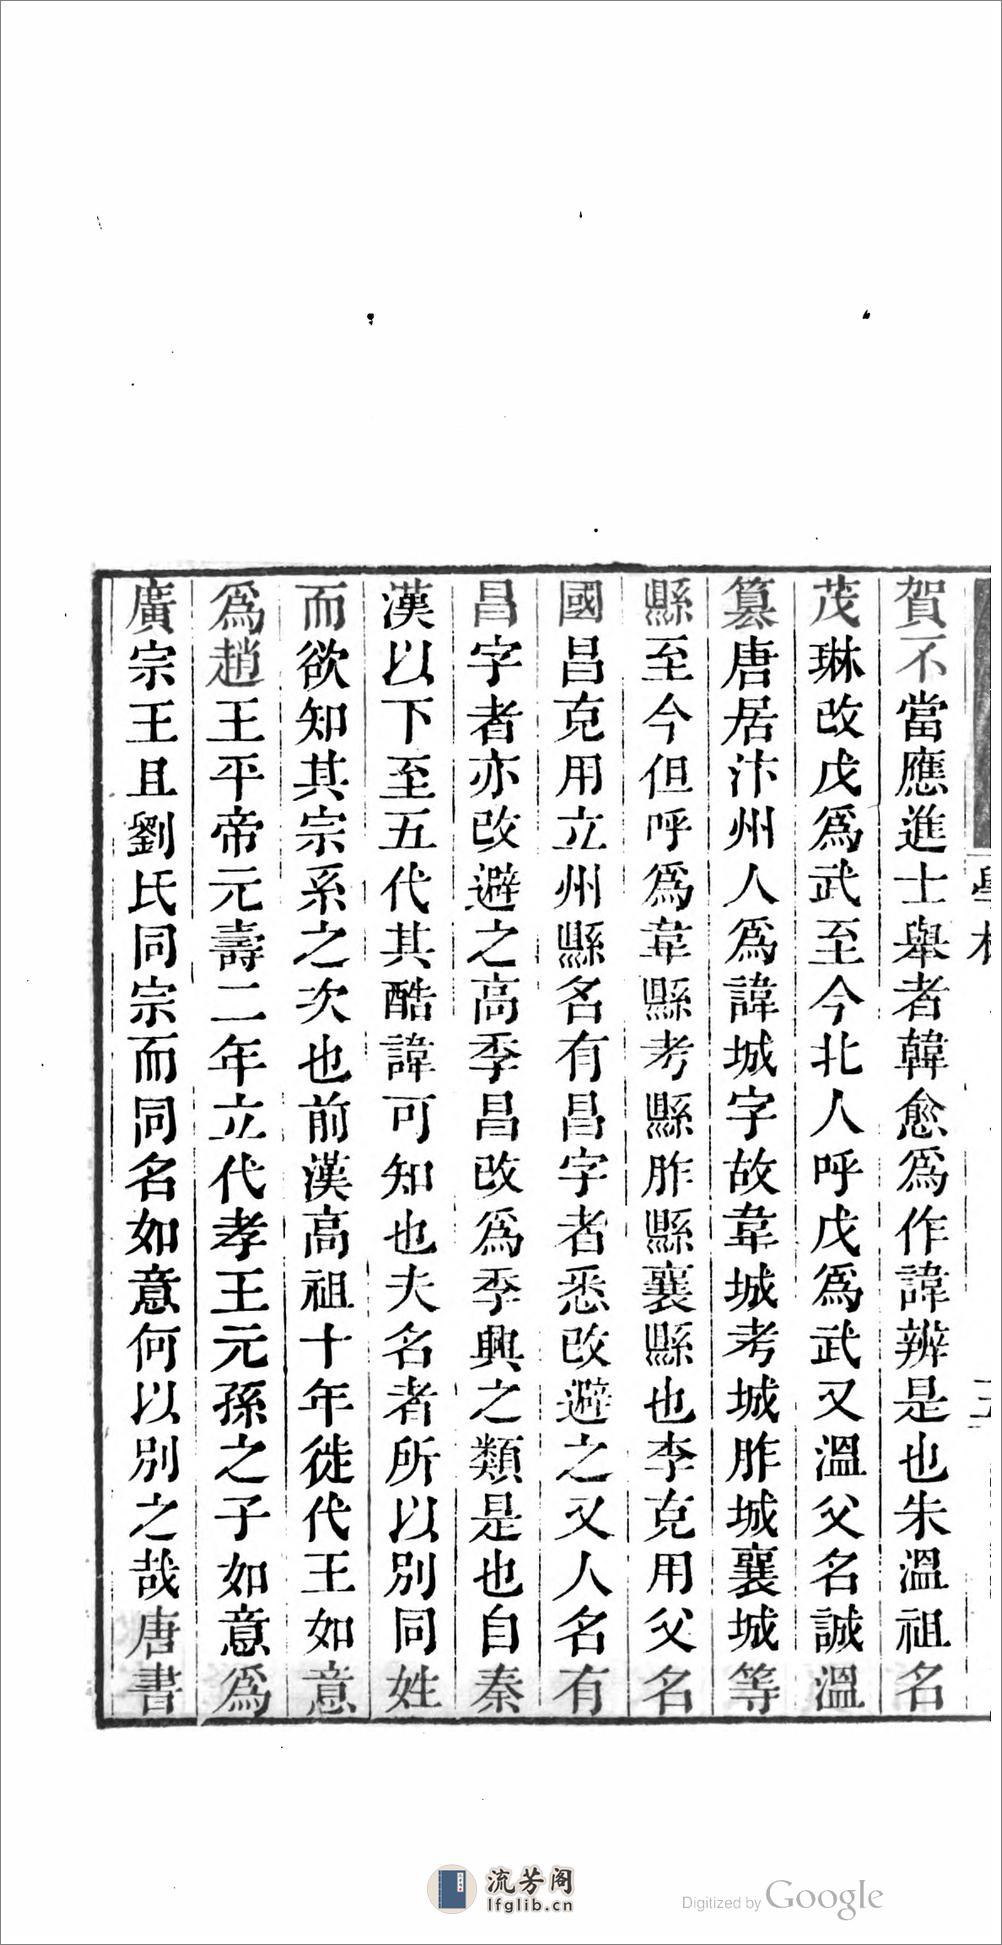 賀不當應進士舉者韓愈爲作諱辨是也朱溫祖名
茂琳改戊爲武至今北人呼戊爲武又溫父名誠溫
篡唐居汴州人爲諱城字故韋城考城胙城襄城等
縣至今但呼爲韋縣考縣胙縣襄縣也李克用父名
國昌克用立州縣名有昌字者悉改避之又人名有
昌字者亦改避之高季昌改爲季興之類是也自秦
漢以下至五代其酷諱可知也夫名者所以別同姓
而欲知其宗系之次也前漢高祖十年徙代王如意
爲趙王平帝元壽二年立代孝王元孫之子如意爲
廣宗王且劉氏同宗而同名如意何以別之哉唐書
流芳阁
lfglib.cn
Digitized by Google